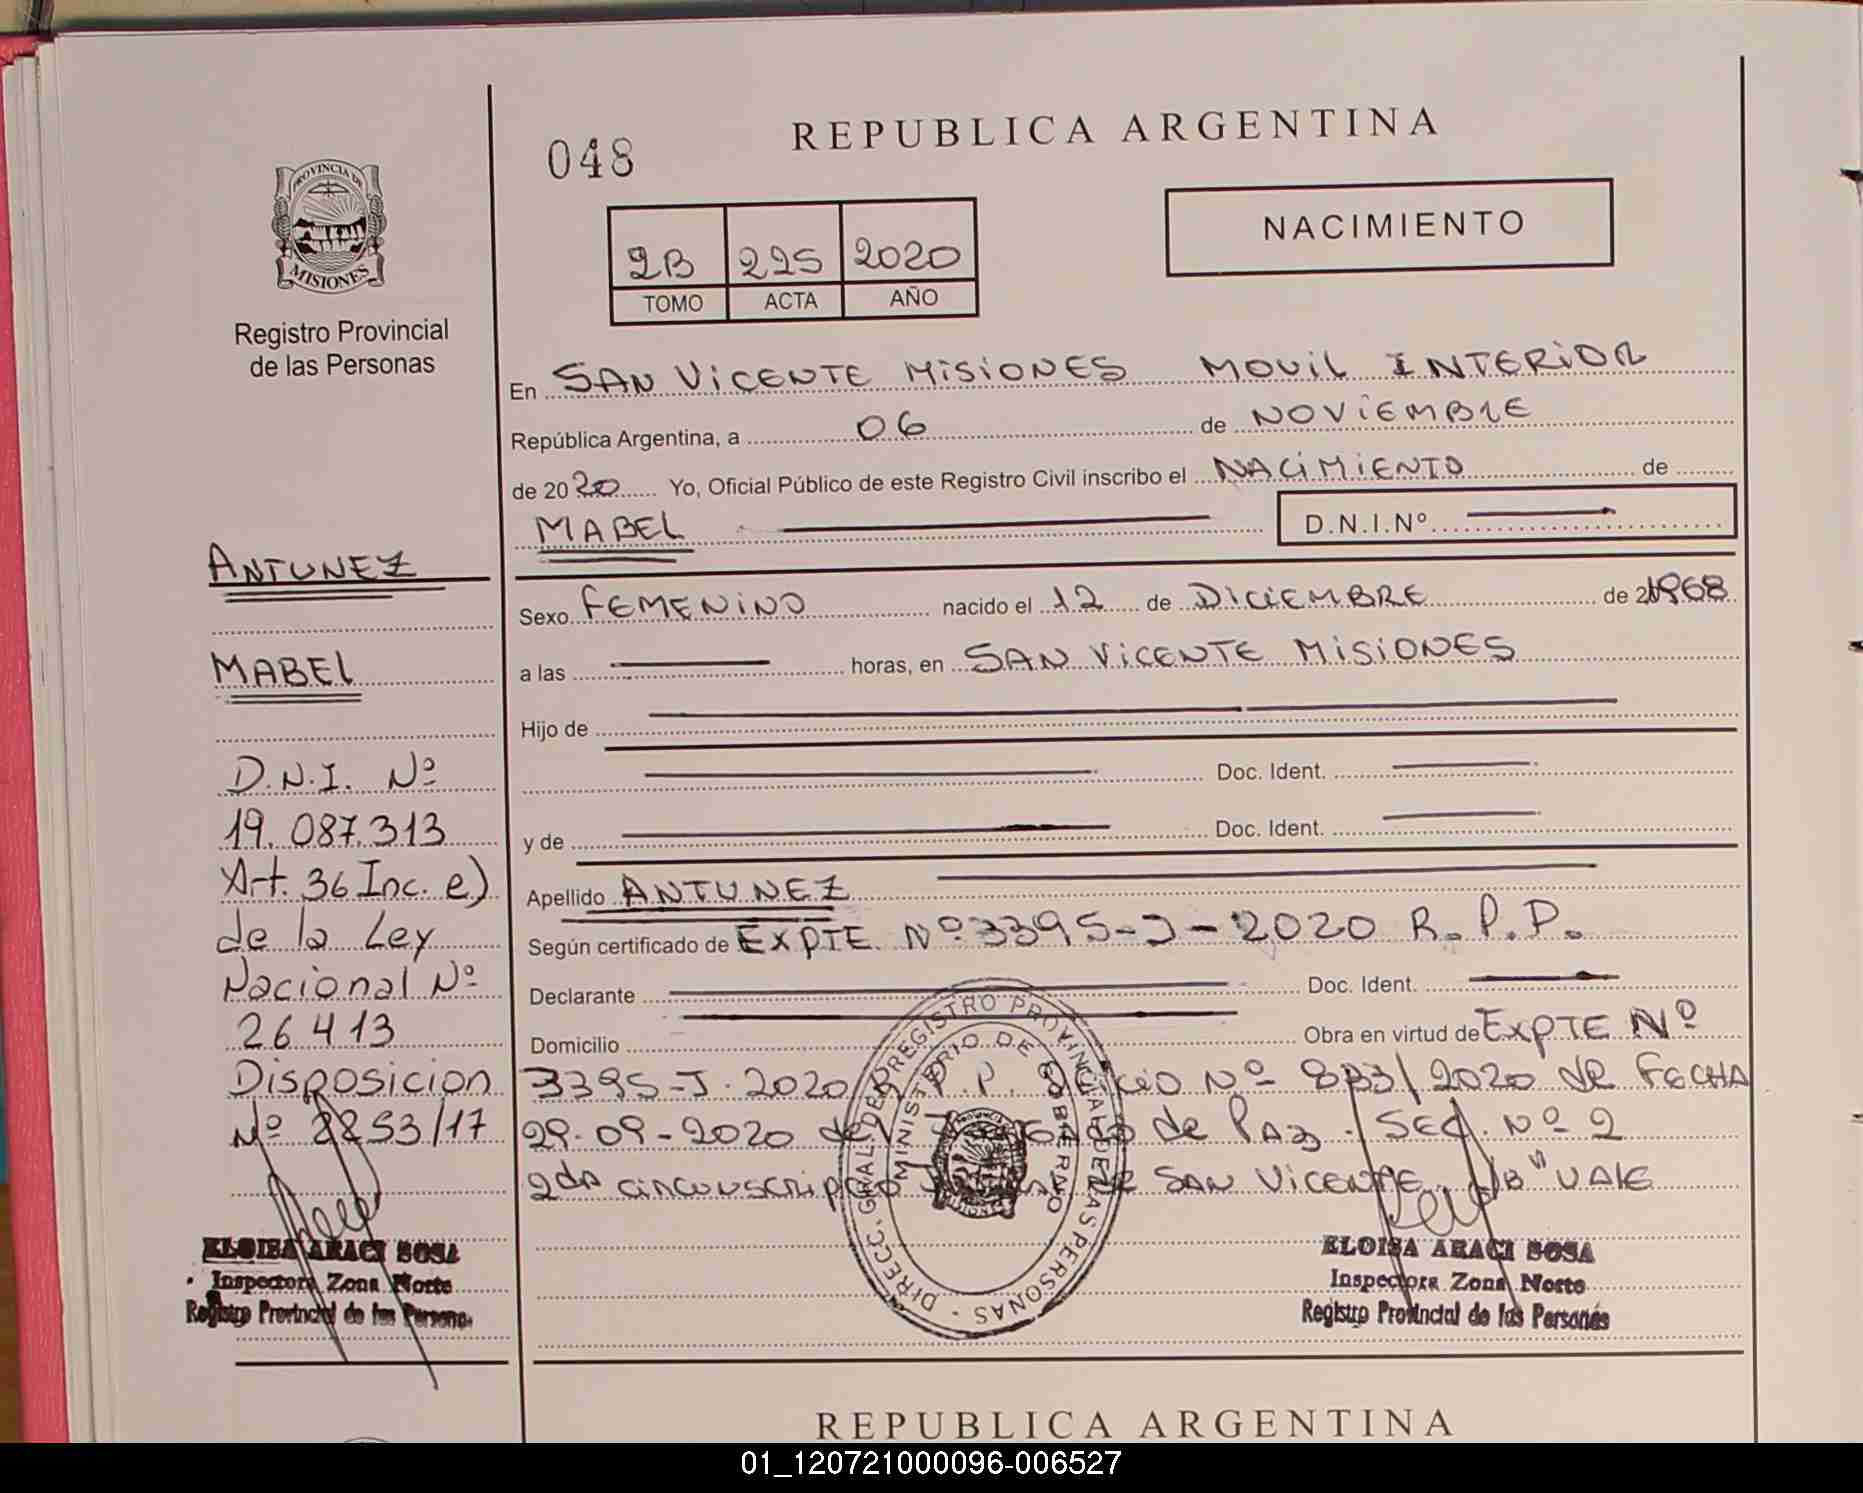 REPUBLICA ARGENTINA
048
NACIMIENTO
2B 225 2020
TOMO ACTA AÑO
PROVINCIA DE
MISIONES
Registro Provincial
de las Personas
En SAN VICENTE MISIONES MOVIL INTERIOR
República Argentina, a 06 de NOVIEMBRE
de 2020 Yo, Oficial Público de este Registro Civil inscribo el NACIMIENTO de
MABEL D.N.I.Nº
Sexo FEMENINO nacido el 12 de DICIEMBRE de 1968
a las horas, en SAN VICENTE MISIONES
Hijo de
Doc. Ident.
y de Doc. Ident.
Apellido ANTUNEZ
Según certificado de EXPTE Nº 3395-J-2020 R.P.P.
Declarante Doc. Ident.
Domicilio Obra en virtud de EXPTE Nº
3395-J-2020 P.P. Nº 833/2020 de FECHA
29-09-2020 de PAZ SEC. Nº 2
2da SAN VICENTE "B" VALE
ANTUNEZ
MABEL
D.N.I. Nº
19.087.313
Art. 36 Inc. e)
de la Ley
Nacional Nº
26413
Disposicion
Nº 2253/17
ELOISA ARACI SOSA
Inspectora Zona Norte
Registro Provincial de las Persona
DIRECC. GRAL. DEL REGISTRO PROVINCIAL DE LAS PERSONAS
MINISTERIO DE GOBIERNO
ELOISA ARACI SOSA
Inspectora Zona Norte
Registro Provincial de las Personas
REPUBLICA ARGENTINA
01_120721000096-006527